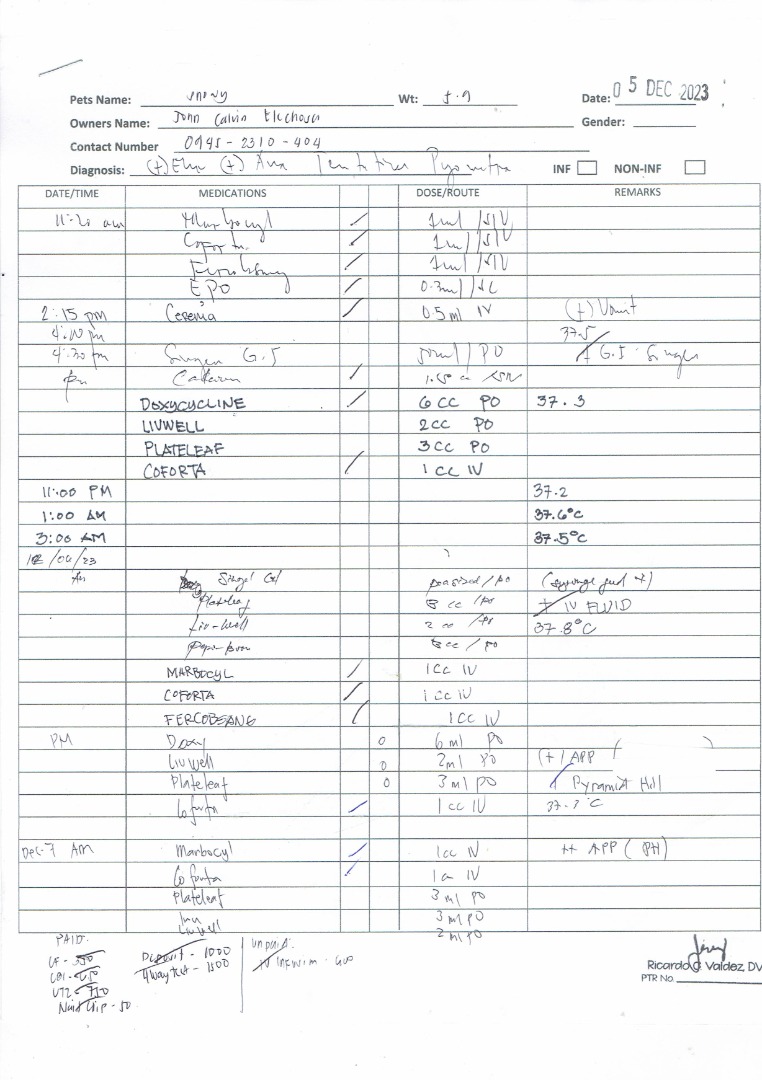 Pets Name: Wt: 5.9 Date: 05 DEC 2023
Owners Name: John Calvin Gender:
Contact Number 0945-2310-404
Diagnosis: (+) Ehr (+) Ana Pyometra INF NON-INF
DATE/TIME MEDICATIONS DOSE/ROUTE REMARKS
11:20 am Marbocyl / 1ml /SIV
Coforta / 1ml /SIV
/ 1ml /SIV
EPO / 0.3ml /SC
2:15 pm Cerenia / 0.5 ml IV (+) Vomit
4:00 pm 37.5
4:30 pm G.I 50ml / PO G.I.
pm /
DOXYCYCLINE / 6 CC PO 37.3
LIVWELL 2CC PO
PLATELEAF 3 CC PO
COFORTA / 1 CC IV
11:00 PM 37.2
1:00 AM 37.6°C
3:00 AM 37.5°C
12/06/23
Am /PO (syringe feed +)
Plateleaf 3 cc /PO + IV FLUID
Liv-Well 2 cc /PO 37.8°C
cc / PO
MARBOCYL / 1CC IV
COFORTA / 1 CC IV
FERCOBSANG / 1CC IV
PM Doxy 0 6 ml PO
Livwell 0 2ml PO (+) APP ( )
Plateleaf 0 3 ml PO Pyramid Hill
Coforta / 1 cc IV 37.7°C
Dec-7 AM Marbocyl / 1cc IV ++ APP (PH)
Coforta / 1cc IV
Plateleaf 3 ml PO
3 ml PO
Livwell 2 ml PO
PAID.
CF - 350
CBC - 650
UTZ - 710
- 50
Deposit - 1000
4waytest - 1500
unpaid.
IV - 600
Ricardo G. Valdez, DV
PTR No.